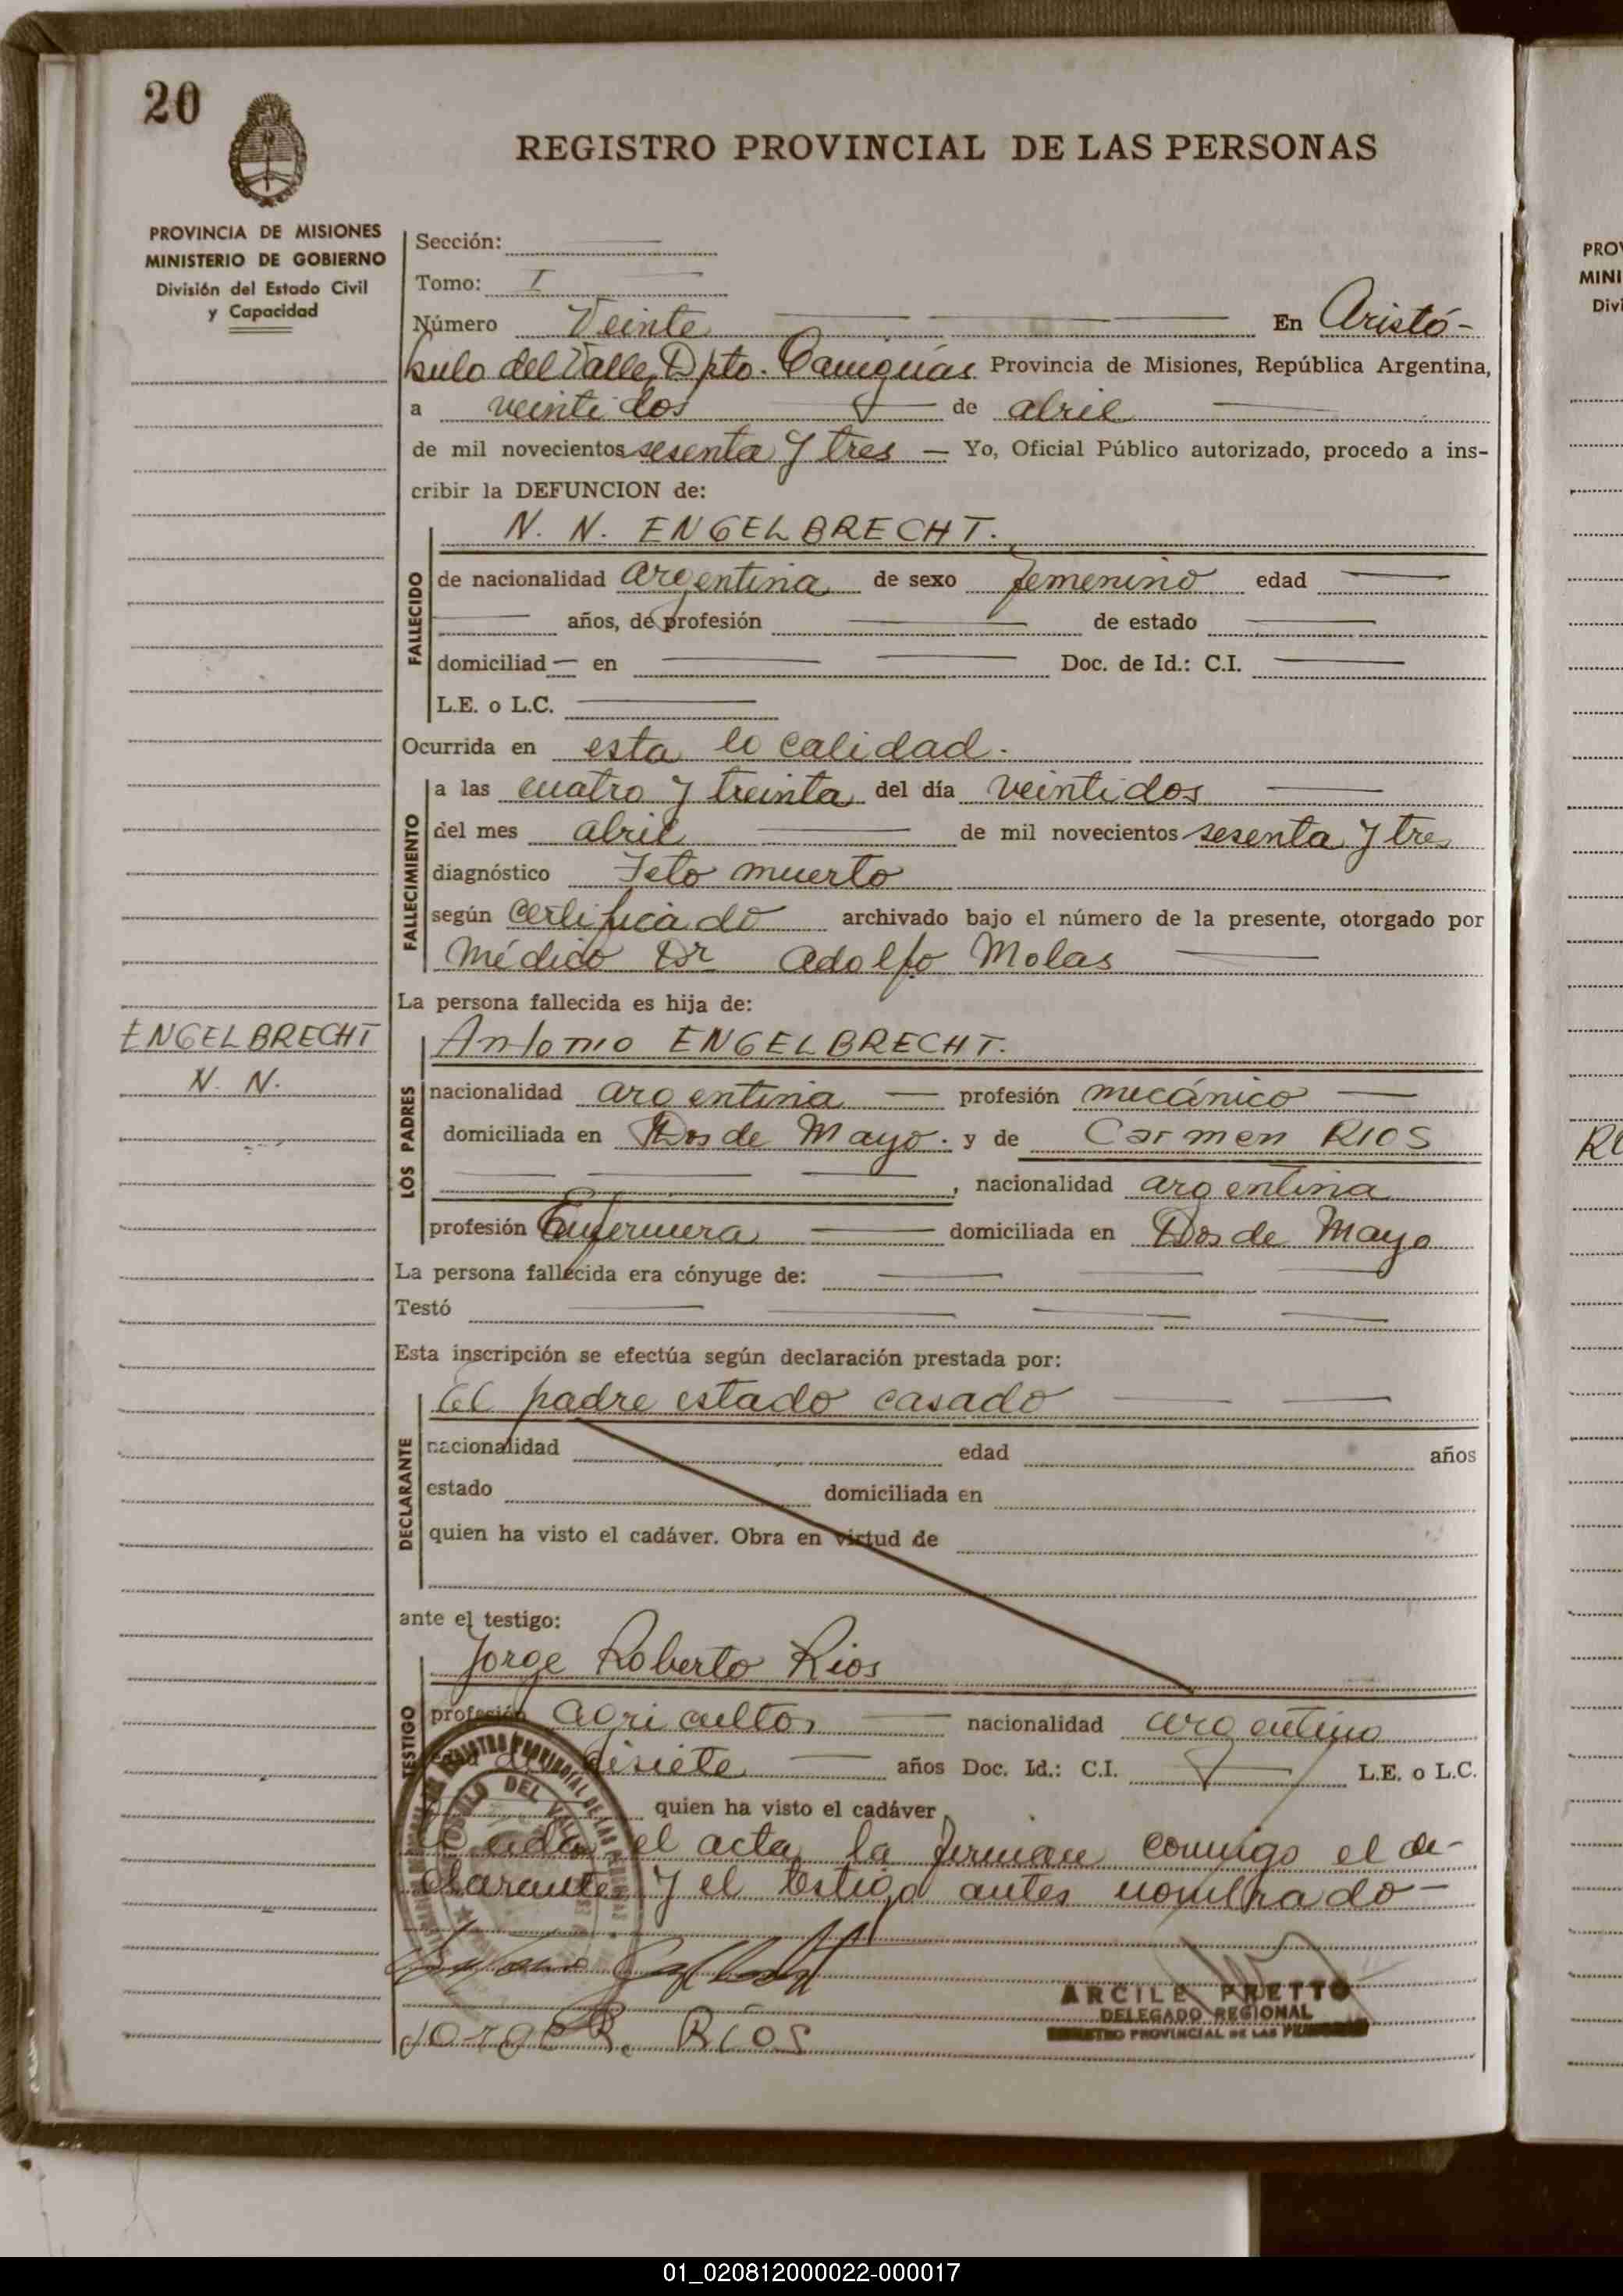 20
REGISTRO PROVINCIAL DE LAS PERSONAS
PROVINCIA DE MISIONES
MINISTERIO DE GOBIERNO
División del Estado Civil
y Capacidad
Sección:
Tomo: I
Número Veinte En Aristó-
bulo del Valle, Dpto. Cainguás Provincia de Misiones, República Argentina,
a veinti dos de abril
de mil novecientos sesenta y tres — Yo, Oficial Público autorizado, procedo a ins-
cribir la DEFUNCION de:
N. N. ENGELBRECHT.
FALLECIDO
de nacionalidad argentina de sexo femenino edad
años, de profesión de estado
domiciliad — en Doc. de Id.: C.I.
L.E. o L.C.
Ocurrida en esta localidad.
FALLECIMIENTO
a las cuatro y treinta del día veintidos
del mes abril de mil novecientos sesenta y tres
diagnóstico Feto muerto
según certificado archivado bajo el número de la presente, otorgado por
Médico Dr Adolfo Molas
La persona fallecida es hija de:
ENGELBRECHT
N. N.
LOS PADRES
Antonio ENGELBRECHT.
nacionalidad argentina — profesión mecánico —
domiciliada en Dos de Mayo. y de Carmen RIOS
, nacionalidad argentina
profesión Enfermera domiciliada en Dos de Mayo
La persona fallecida era cónyuge de:
Testó
Esta inscripción se efectúa según declaración prestada por:
DECLARANTE
El padre estado casado
nacionalidad edad años
estado domiciliada en
quien ha visto el cadáver. Obra en virtud de
ante el testigo:
TESTIGO
Jorge Roberto Rios
profesión agricultor nacionalidad argentino
disiete años Doc. Id.: C.I. L.E. o L.C.
quien ha visto el cadáver
el acta la firman conmigo el de-
clarante y el testigo antes nombrado —
Jorge R. Rios
ARCILE PRETTO
DELEGADO REGIONAL
REGISTRO PROVINCIAL DE LAS PERSONAS
PROV
MINI
Divi
01_020812000022-000017